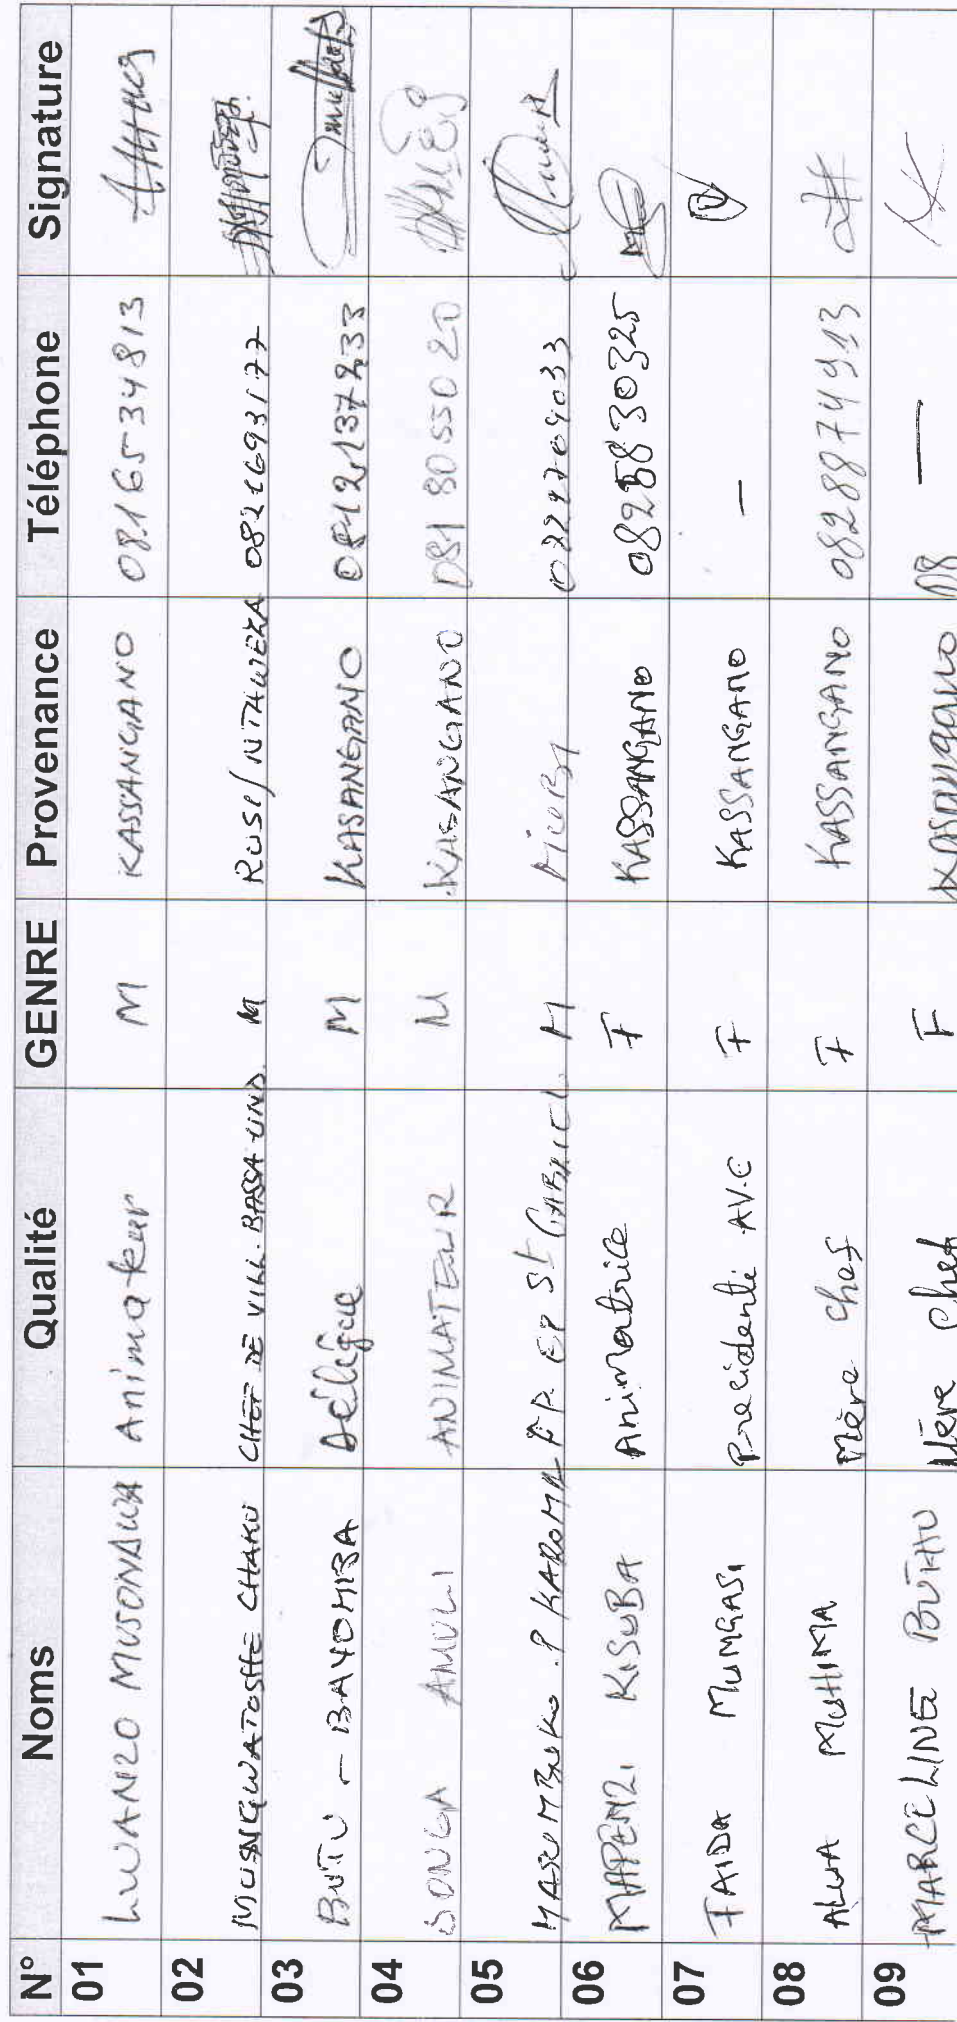 N° Noms Qualité GENRE Provenance Téléphone Signature
01 LWANZO MUSONDWA Animateur M KASSANGANO 0816534813
02 MUSNGWATOSHE CHAKU CHEF DE VILL. BASSA UND. M RUSI/NITAWEZA
03 BUTU - BAYOMBA Délégué M KASANGANO
04 SONGA AMULI ANIMATEUR M KASANGANO 0818055020
05 MASUMBUKO .P KAROMA EP St GABRIEL M
06 MAPENZI KISUBA Animatrice F KASSANGANO
07 FAIDA MUNGASI Precidente AV.C F KASSANGANO —
08 ALUA MUHIMA Mère chef F KASSANGANO 0828874913
09 MARCELINE BUHU Mère chef F KASANGANO 08 —